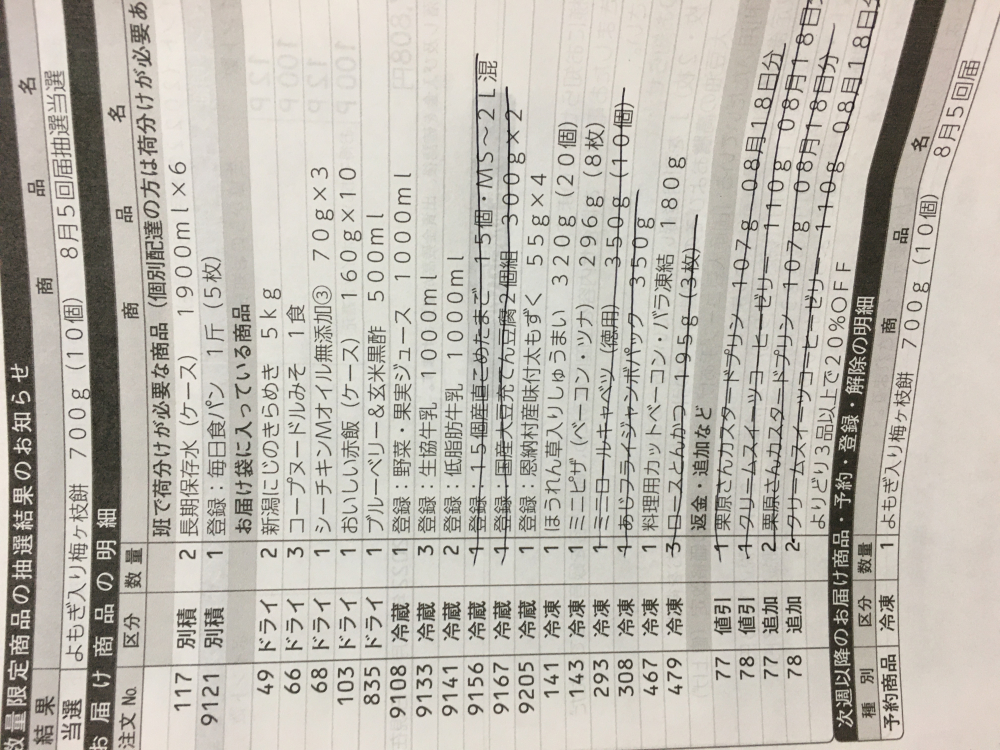 数量限定商品の抽選結果のお知らせ
結果 商品名
当選 よもぎ入り梅ヶ枝餅 700g(10個) 8月5回届抽選当選
お届け商品の明細
注文No. 区分 数量 商品名
班で荷分けが必要な商品(個別配達の方は荷分けが必要あ
117 別積 2 長期保存水(ケース) 1900ml×6
9121 別積 1 登録:毎日食パン 1斤(5枚)
お届け袋に入っている商品
49 ドライ 2 新潟にじのきらめき 5kg
66 ドライ 3 コープヌードルみそ 1食
68 ドライ 1 シーチキンMオイル無添加③ 70g×3
103 ドライ 1 おいしい赤飯(ケース) 160g×10
835 ドライ 1 ブルーベリー&玄米黒酢 500ml
9108 冷蔵 1 登録:野菜・果実ジュース 1000ml
9133 冷蔵 3 登録:生協牛乳 1000ml
9141 冷蔵 2 登録:低脂肪牛乳 1000ml
9156 冷蔵 1 登録:15個産直こめたまご 15個・MS~2L混
9167 冷蔵 1 登録:国産大豆充てん豆腐2個組 300g×2
9205 冷蔵 1 登録:恩納村産味付太もずく 55g×4
141 冷凍 1 ほうれん草入りしゅうまい 320g(20個)
143 冷凍 1 ミニピザ(ベーコン・ツナ) 296g(8枚)
293 冷凍 1 ミニロールキャベツ(徳用) 350g(10個)
308 冷凍 1 あじフライジャンボパック 350g
467 冷凍 1 料理用カットベーコン・バラ凍結 180g
479 冷凍 3 ロースとんかつ 195g(3枚)
返金・追加など
77 値引 1 栗原さんカスタードプリン 107g 08月18日分
78 値引 1 クリームスイーツコーヒーゼリー 110g 08月18日分
77 追加 2 栗原さんカスタードプリン 107g 08月18日分
78 追加 2 クリームスイーツコーヒーゼリー 110g 08月18日分
よりどり3品以上で20%OFF
次週以降のお届け商品・予約・登録・解除の明細
種別 区分 数量 商品名
予約商品 冷凍 1 よもぎ入り梅ヶ枝餅 700g(10個) 8月5回届